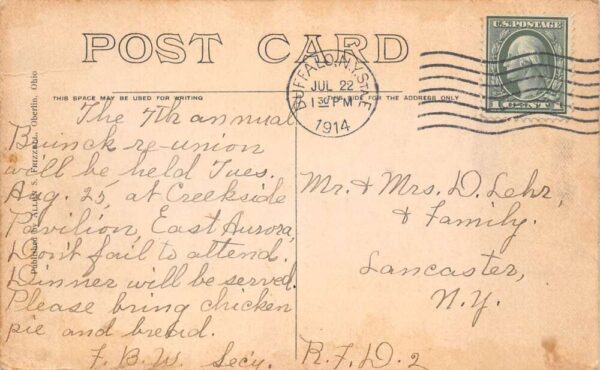 POST CARD
THIS SPACE MAY BE USED FOR WRITING
SIDE FOR THE ADDRESS ONLY
U.S. POSTAGE
BUFFALO, N.Y. STA. E
JUL 22
1 30 PM
1914
The 7th annual
Buinck re-union
will be held Tues.
Aug. 25, at Creekside
Pavilion, East Aurora,
Don't fail to attend.
Dinner will be served.
Please bring chicken
pie and bread.
F. B. W. Secy.
Mr. & Mrs. D. Lehr,
& Family.
Lancaster,
N.Y.
R.F.D. 2
Published by S. Frizzell, Oberlin, Ohio